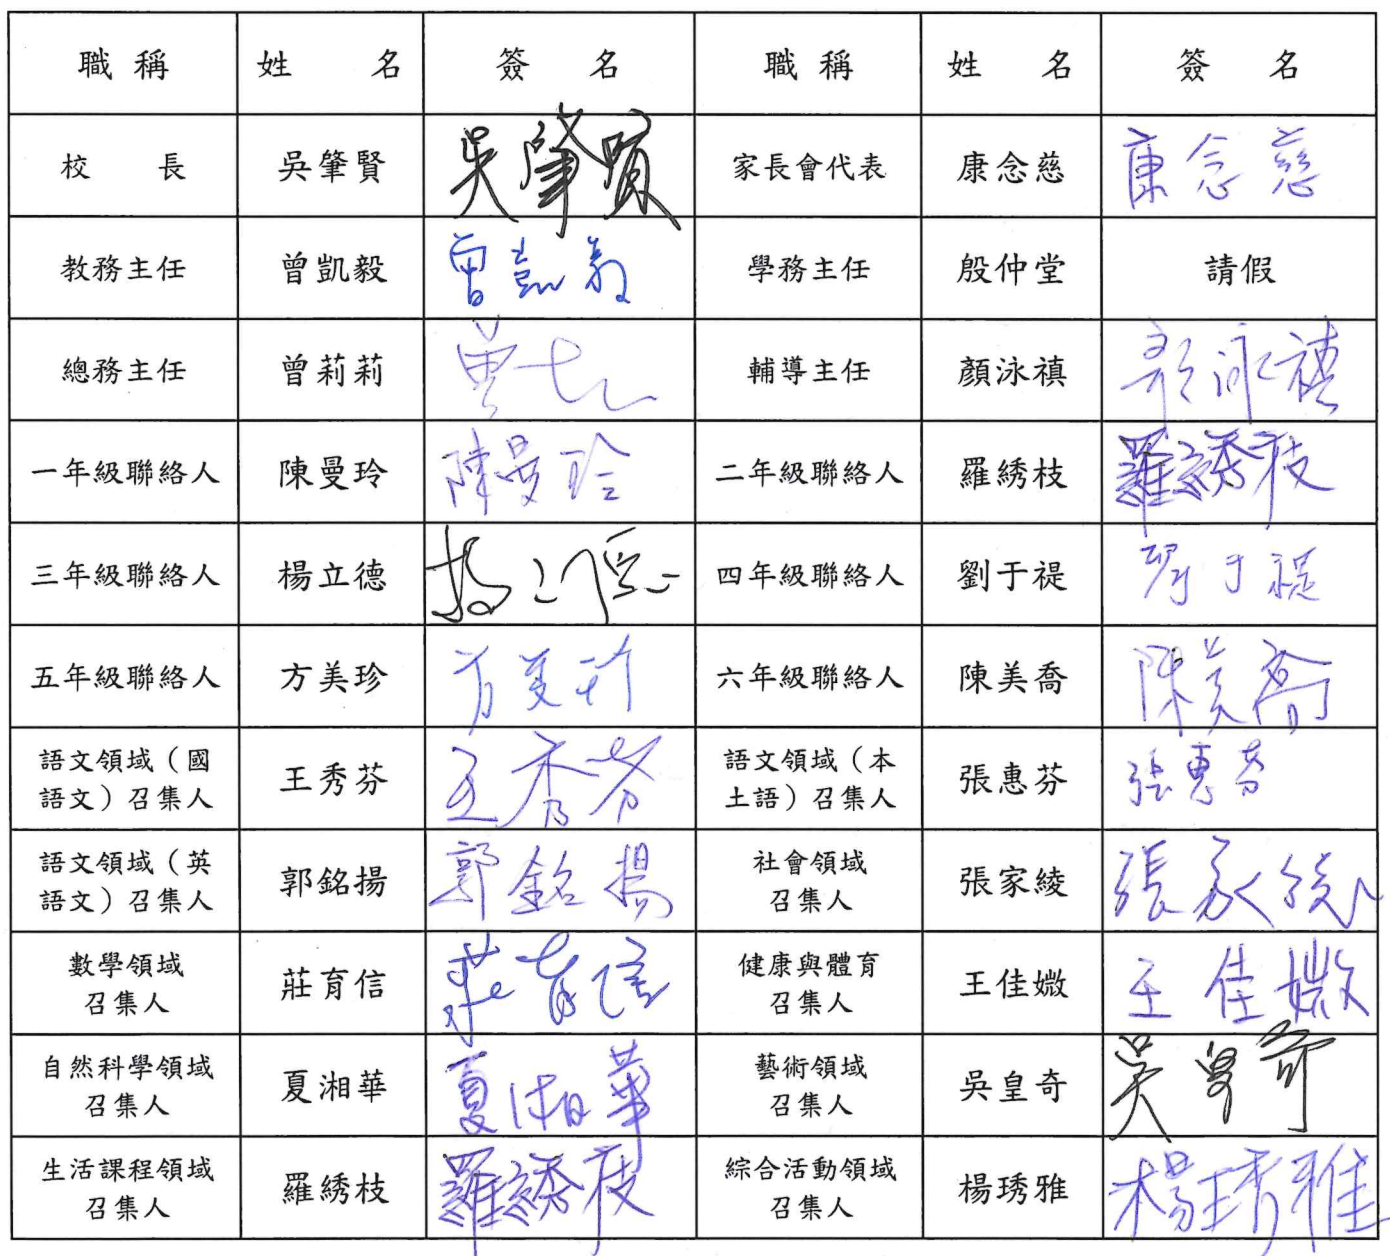 職 稱 姓 名 簽 名 職 稱 姓 名 簽 名
校 長 吳肇賢 吳肇賢 家長會代表 康念慈 康念慈
教務主任 曾凱毅 曾凱毅 學務主任 殷仲堂 請假
總務主任 曾莉莉 曾 輔導主任 顏泳禛 顏泳禛
一年級聯絡人 陳曼玲 陳曼玲 二年級聯絡人 羅綉枝 羅綉枝
三年級聯絡人 楊立德 楊立德 四年級聯絡人 劉于禔 劉于禔
五年級聯絡人 方美珍 方美珍 六年級聯絡人 陳美喬 陳美喬
語文領域（國
語文）召集人 王秀芬 王秀芬 語文領域（本
土語）召集人 張惠芬 張惠芬
語文領域（英
語文）召集人 郭銘揚 郭銘揚 社會領域
召集人 張家綾 張家綾
數學領域
召集人 莊育信 莊育信 健康與體育
召集人 王佳媺 王佳媺
自然科學領域
召集人 夏湘華 夏湘華 藝術領域
召集人 吳皇奇 吳皇奇
生活課程領域
召集人 羅綉枝 羅綉枝 綜合活動領域
召集人 楊琇雅 楊琇雅